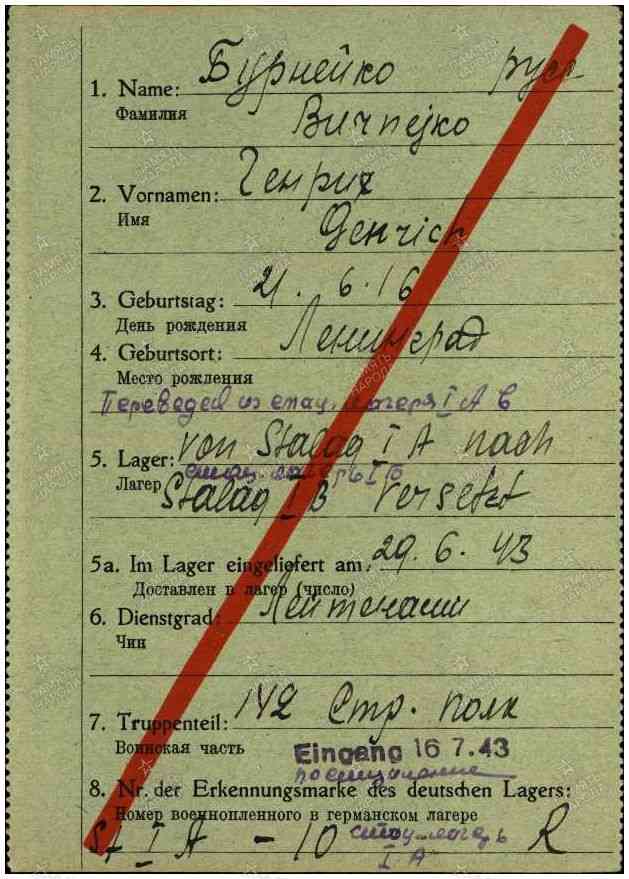 1. Name: Бурнейко русс
Фамилия
2. Vornamen: Генрих
Имя
3. Geburtstag: 21. 6. 16
День рождения
4. Geburtsort: Ленинград
Место рождения
Переведен из стац. лагеря I A в
5. Lager: von Stalag I A nach
стац. лагерь I Б
Лагер Stalag I B versetzt
5a. Im Lager eingeliefert am: 29. 6. 43
Доставлен в лагер (число)
6. Dienstgrad: Лейтенант
Чин
7. Truppenteil: 142 Стр. полк
Воинская часть
Eingang 16 7.43
поступление
8. Nr. der Erkennungsmarke des deutschen Lagers:
Номер военнопленного в германском лагере
St I A - 10 R
стац. лагерь
I A